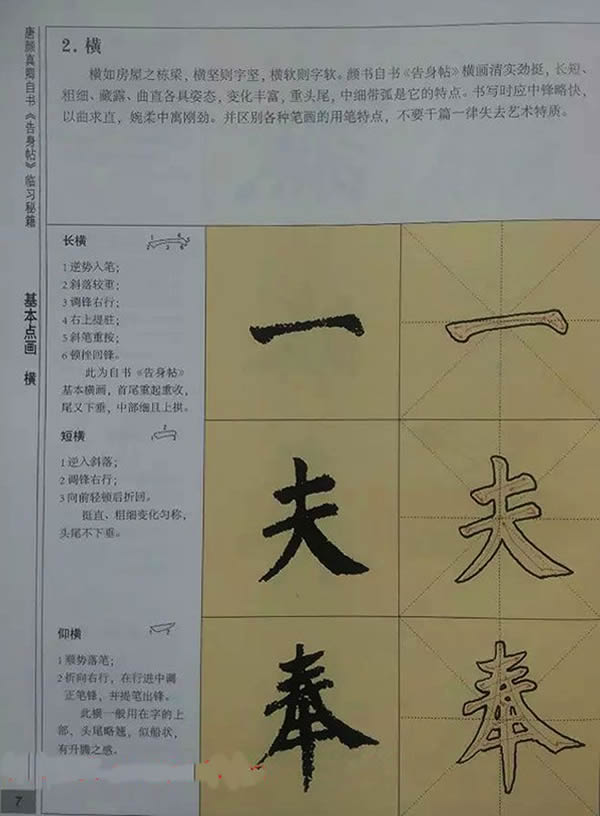 唐颜真卿自书《告身帖》临习秘籍
基本点画 横
2. 横
横如房屋之栋梁，横坚则字坚，横软则字软。颜书自书《告身帖》横画清实劲挺，长短、
粗细、藏露、曲直各具姿态，变化丰富，重头尾，中细带弧是它的特点。书写时应中锋略快，
以曲求直，婉柔中寓刚劲。并区别各种笔画的用笔特点，不要千篇一律失去艺术特质。
长横
1 逆势入笔；
2 斜落较重；
3 调锋右行；
4 右上提驻；
5 斜笔重按；
6 顿挫回锋。
此为自书《告身帖》
基本横画，首尾重起重收，
尾又下垂，中部细且上拱。
一
一
短横
1 逆入斜落；
2 调锋右行；
3 向前轻顿后折回。
挺直、粗细变化匀称，
头尾不下垂。
夫
夫
仰横
1 顺势落笔；
2 折向右行，在行进中调
正笔锋，并提笔出锋。
此横一般用在字的上
部，头尾略翘，似船状，
有升腾之感。
奉
奉
7